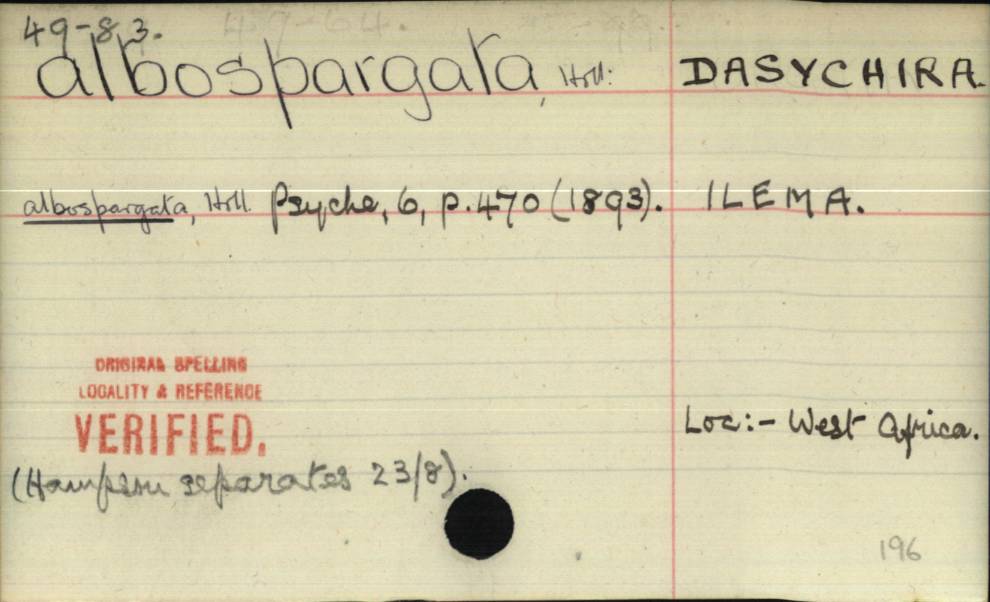 49-83. 47-64.
albospargata, Holl: DASYCHIRA.
albospargata, Holl. Psyche, 6, p.470 (1893). ILEMA.
ORIGINAL SPELLING
LOCALITY & REFERENCE
VERIFIED.
Loc:- West Africa.
(Hampson separates 23/8).
196